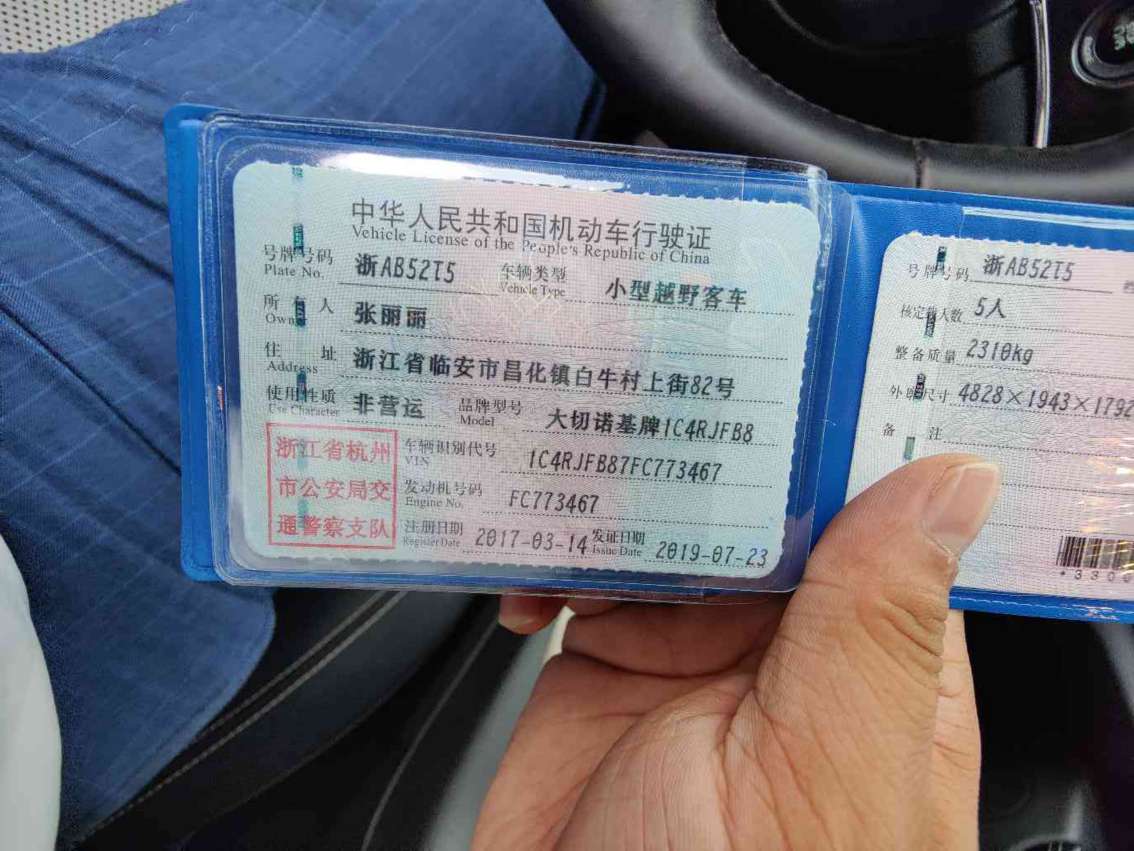 中华人民共和国机动车行驶证
Vehicle License of the People's Republic of China
号牌号码 浙AB52T5 车辆类型 小型越野客车
Plate No. Vehicle Type
所有人 张丽丽
Owner
住址 浙江省临安市昌化镇白牛村上街82号
Address
使用性质 非营运 品牌型号 大切诺基牌1C4RJFB8
Use Character Model
浙江省杭州
市公安局交
通警察支队
车辆识别代号 1C4RJFB87FC773467
VIN
发动机号码 FC773467
Engine No.
注册日期 2017-03-14 发证日期 2019-07-23
Register Date Issue Date
号牌号码 浙AB52T5
核定载人数 5人
整备质量 2310kg
外廓尺寸 4828×1943×1792
备注
*3300